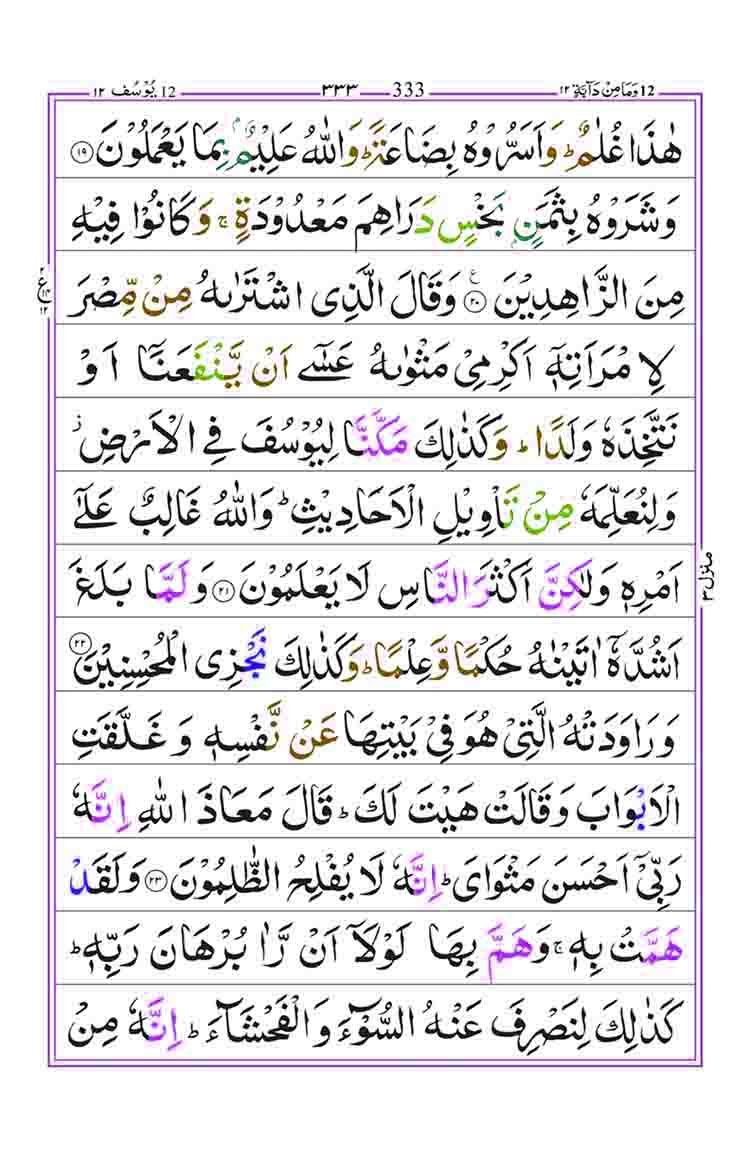 12 وَمَا مِنْ دَآبَّةٍ ١٢ 333 ٣٣٣ 12 يُوْسُف ١٢
هٰذَا غُلٰمٌ ؕ وَاَسَرُّوْهُ بِضَاعَةً ؕ وَاللّٰهُ عَلِيْمٌۢ بِمَا يَعْمَلُوْنَ ﴿١٩﴾
وَشَرَوْهُ بِثَمَنٍۢ بَخْسٍ دَرَاهِمَ مَعْدُوْدَةٍ ۚ وَكَانُوْا فِيْهِ
مِنَ الزَّاهِدِيْنَ ﴿٢٠﴾ ع وَقَالَ الَّذِى اشْتَرٰىهُ مِنْ مِّصْرَ
ع ١٢ ١٢
لِامْرَاَتِهٖۤ اَكْرِمِىْ مَثْوٰىهُ عَسٰٓى اَنْ يَّنْفَعَنَاۤ اَوْ
نَتَّخِذَهٗ وَلَدًا ؕ وَكَذٰلِكَ مَكَّنَّا لِيُوْسُفَ فِى الْاَرْضِ ز
وَلِنُعَلِّمَهٗ مِنْ تَاْوِيْلِ الْاَحَادِيْثِ ؕ وَاللّٰهُ غَالِبٌ عَلٰٓى
اَمْرِهٖ وَلٰكِنَّ اَكْثَرَ النَّاسِ لَا يَعْلَمُوْنَ ﴿٢١﴾ وَلَمَّا بَلَغَ
منزل ٣
اَشُدَّهٗۤ اٰتَيْنٰهُ حُكْمًا وَّعِلْمًا ؕ وَكَذٰلِكَ نَجْزِى الْمُحْسِنِيْنَ ﴿٢٢﴾
وَرَاوَدَتْهُ الَّتِىْ هُوَ فِىْ بَيْتِهَا عَنْ نَّفْسِهٖ وَغَلَّقَتِ
الْاَبْوَابَ وَقَالَتْ هَيْتَ لَكَ ؕ قَالَ مَعَاذَ اللّٰهِ اِنَّهٗ
رَبِّىْۤ اَحْسَنَ مَثْوَاىَ ؕ اِنَّهٗ لَا يُفْلِحُ الظّٰلِمُوْنَ ﴿٢٣﴾ وَلَقَدْ
هَمَّتْ بِهٖ ۚ وَهَمَّ بِهَا لَوْلَاۤ اَنْ رَّاٰ بُرْهَانَ رَبِّهٖ ؕ
كَذٰلِكَ لِنَصْرِفَ عَنْهُ السُّوْٓءَ وَالْفَحْشَآءَ ؕ اِنَّهٗ مِنْ